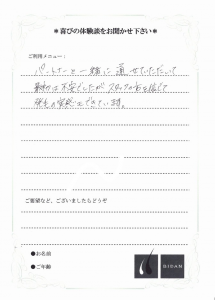 ＊喜びの体験談をお聞かせ下さい＊
ご利用メニュー：
パートナーと一緒に通せていただいて
最初は不安でしたがスタッフの方を信じて
発毛の実感もできています。
ご要望など、ございましたらどうぞ
●お名前
●ご年齢
BIZAN